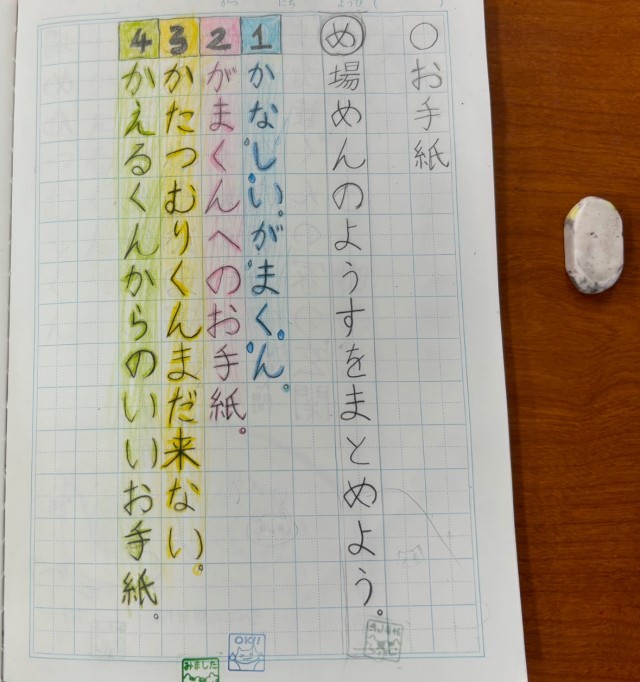 ○お手紙
め 場めんのようすをまとめよう。
1 かなしいがまくん。
2 がまくんへのお手紙。
3 かたつむりくんまだ来ない。
4 かえるくんからのいいお手紙。
OK!!
みました